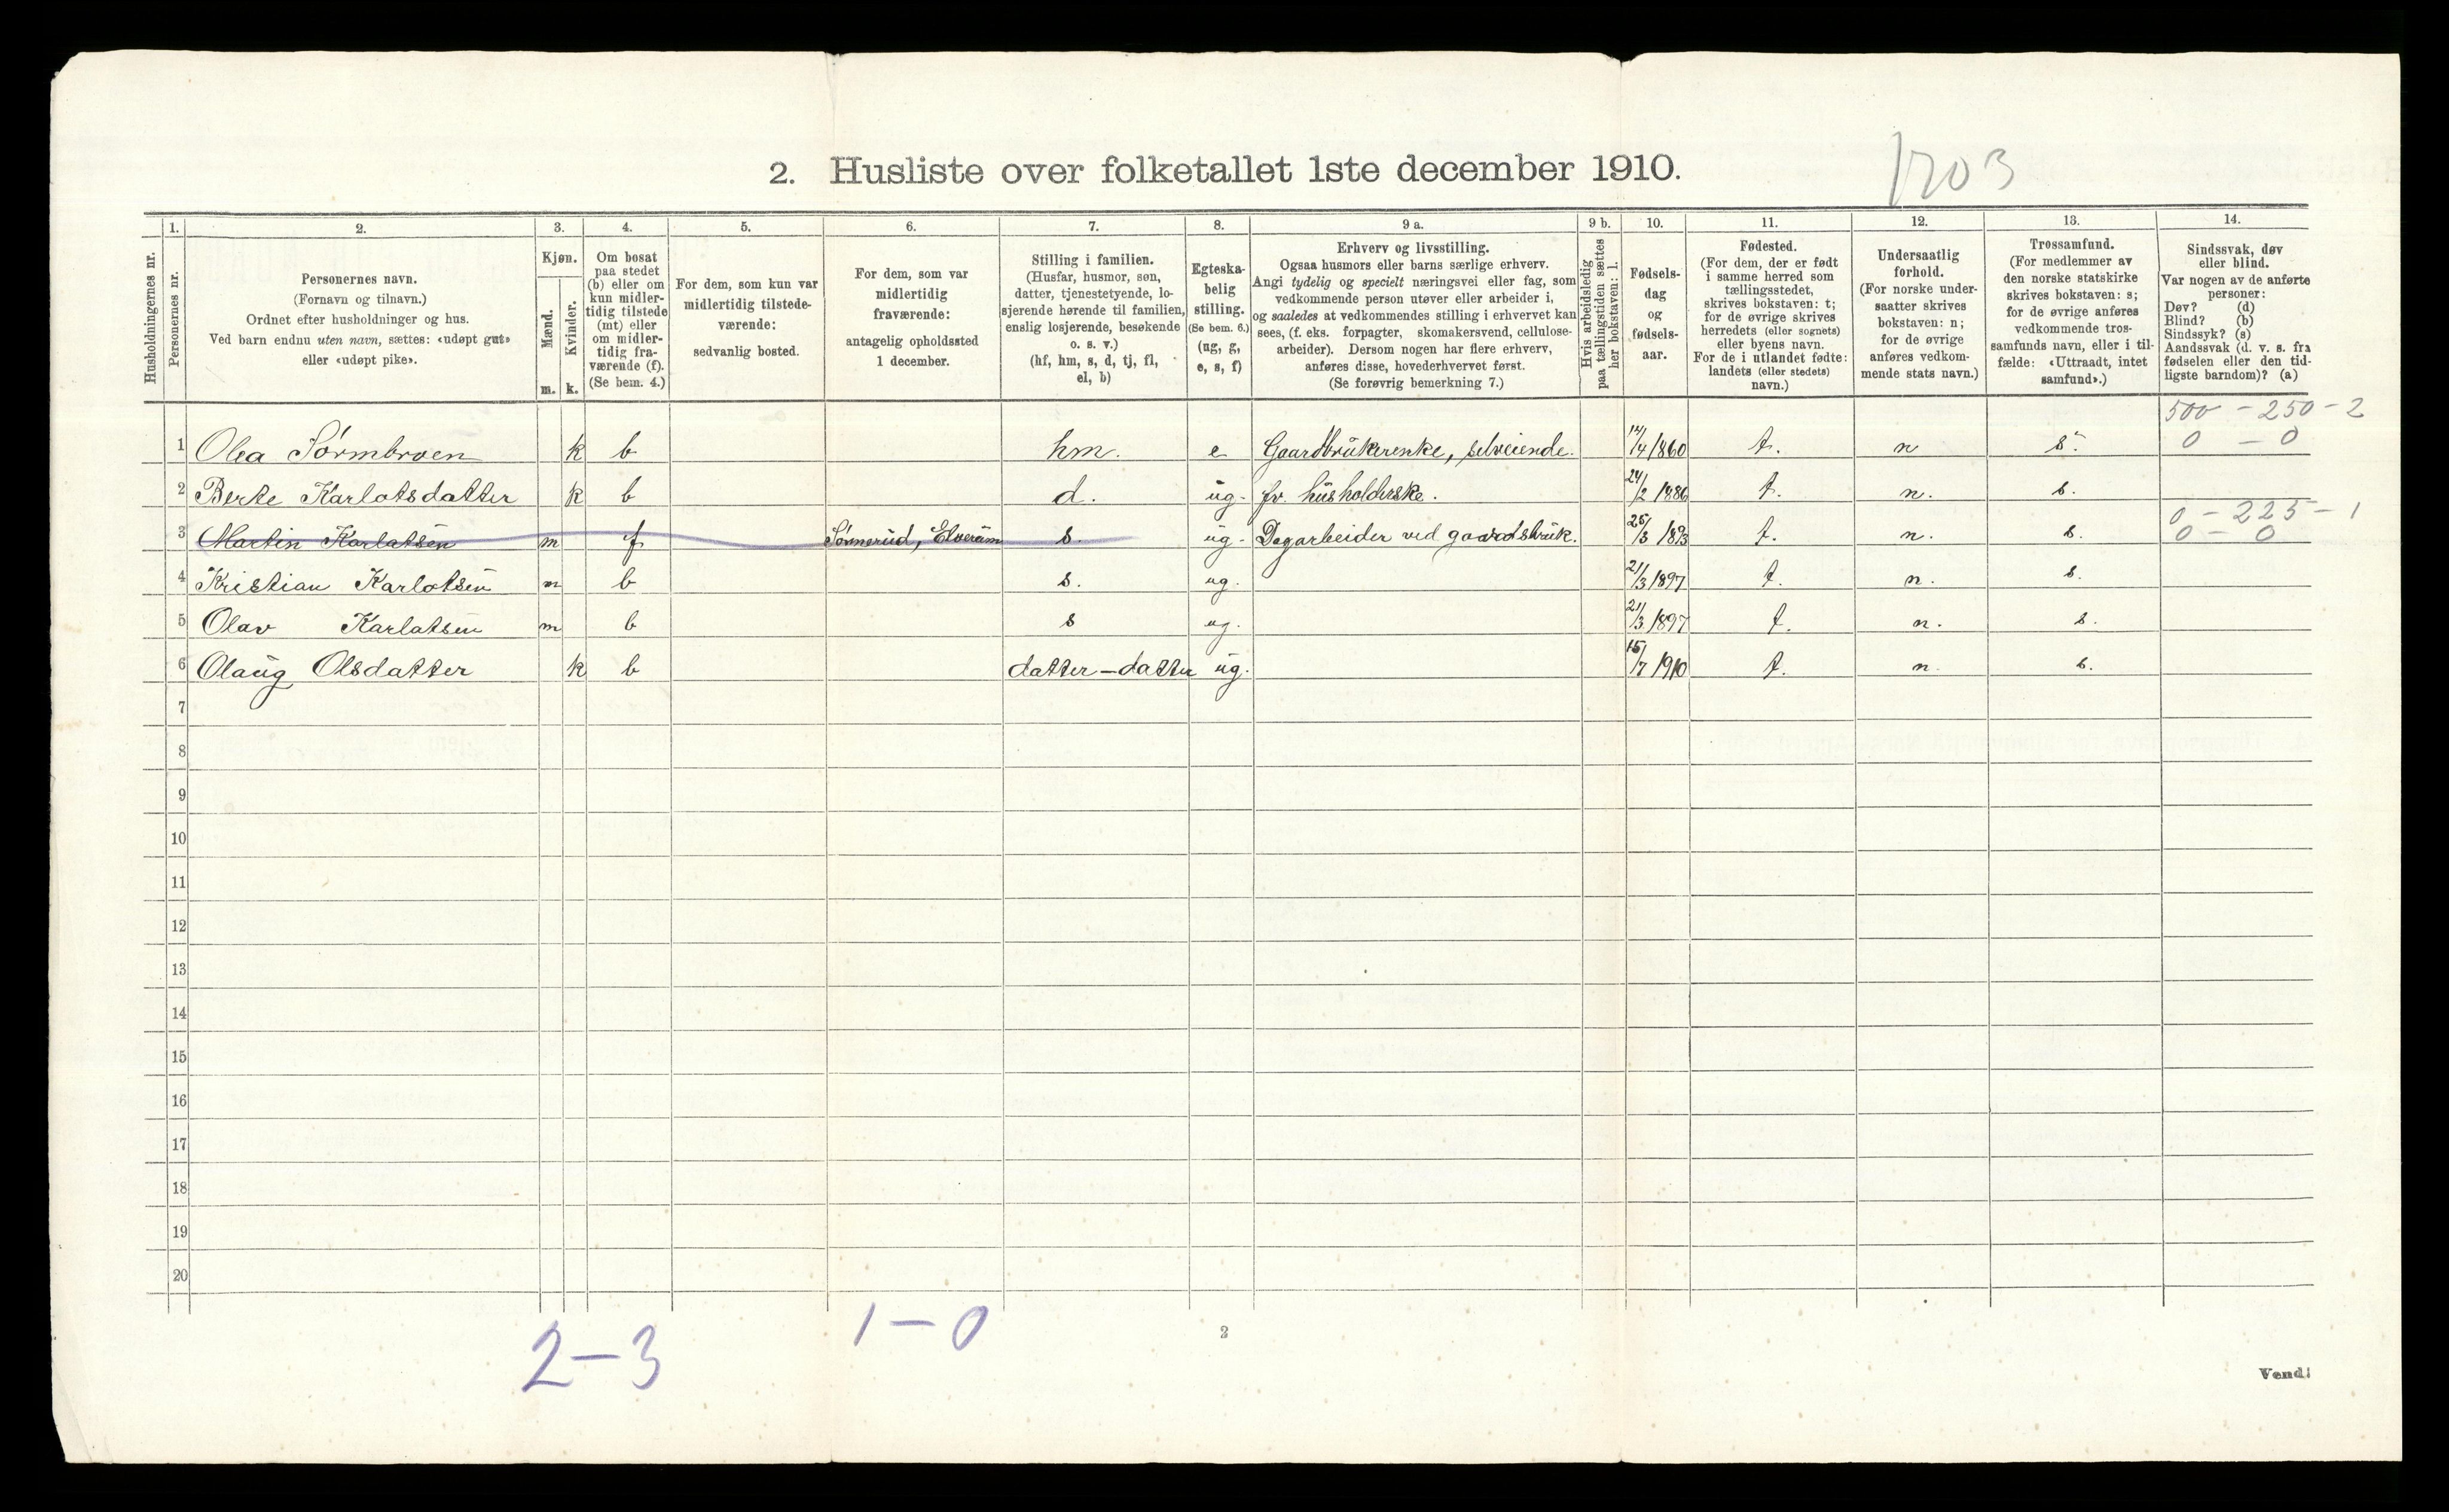 2. Husliste over folketallet 1ste december 1910.
1203
1. 2. 3. 4. 5. 6. 7. 8. 9 a. 9 b. 10. 11. 12. 13. 14.
Husholdningernes nr.
Personernes nr.
Personernes navn.
(Fornavn og tilnavn.)
Ordnet efter husholdninger og hus.
Ved barn endnu uten navn, sættes: «udøpt gut»
eller «udøpt pike».
Kjøn.
Mænd.
m.
Kvinder.
k.
Om bosat
paa stedet
(b) eller om
kun midler-
tidig tilstede
(mt) eller
om midler-
tidig fra-
værende (f).
(Se bem. 4.)
For dem, som kun var
midlertidig tilstede-
værende:
sedvanlig bosted.
For dem, som var
midlertidig
fraværende:
antagelig opholdssted
1 december.
Stilling i familien.
(Husfar, husmor, søn,
datter, tjenestetyende, lo-
sjerende hørende til familien,
enslig losjerende, besøkende
o. s. v.)
(hf, hm, s, d, tj, fl,
el, b)
Egteska-
belig
stilling.
(Se bem. 6.)
(ug, g,
e, s, f)
Erhverv og livsstilling.
Ogsaa husmors eller barns særlige erhverv.
Angi tydelig og specielt næringsvei eller fag, som
vedkommende person utøver eller arbeider i,
og saaledes at vedkommendes stilling i erhvervet kan
sees, (f. eks. forpagter, skomakersvend, cellulose-
arbeider). Dersom nogen har flere erhverv,
anføres disse, hovederhvervet først.
(Se forøvrig bemerkning 7.)
Hvis arbeidsledig
paa tællingstiden sættes
her bokstaven: l.
Fødsels-
dag
og
fødsels-
aar.
Fødested.
(For dem, der er født
i samme herred som
tællingsstedet,
skrives bokstaven: t;
for de øvrige skrives
herredets (eller sognets)
eller byens navn.
For de i utlandet fødte:
landets (eller stedets)
navn.)
Undersaatlig
forhold.
(For norske under-
saatter skrives
bokstaven: n;
for de øvrige
anføres vedkom-
mende stats navn.)
Trossamfund.
(For medlemmer av
den norske statskirke
skrives bokstaven: s;
for de øvrige anføres
vedkommende tros-
samfunds navn, eller i til-
fælde: «Uttraadt, intet
samfund».)
Sindssvak, døv
eller blind.
Var nogen av de anførte
personer:
Døv? (d)
Blind? (b)
Sindssyk? (s)
Aandssvak (d. v. s. fra
fødselen eller den tid-
ligste barndom)? (a)
500 - 250 - 2
0 - 0
1 Olea Sørmbroen k b hm. e Gaardbrukerenke, selveiende. 14/4 1860 t. n s.
2 Berte Karlotsdatter k b d. ug. fv. husholderske. 24/2 1886 t. n. s.
0 - 225 - 1
3 Martin Karlotsen m f Sørnerud, Elverum s. ug. Dagarbeider ved gaardsbruk. 25/3 1893 t. n. s. 0 - 0
4 Kristian Karlotsen m b s. ug. 21/3 1897 t. n. s.
5 Olav Karlotsen m b s ug. 21/3 1897 t. n. s.
6 Olaug Olsdatter k b datter-datter ug. 15/7 1910 t. n. s.
7
8
9
10
11
12
13
14
15
16
17
18
19
20
2-3
1-0
2
Vend!